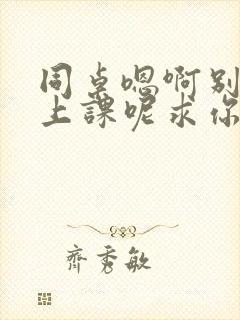 同桌嗯啊别
上課呢求你
齊秀敏